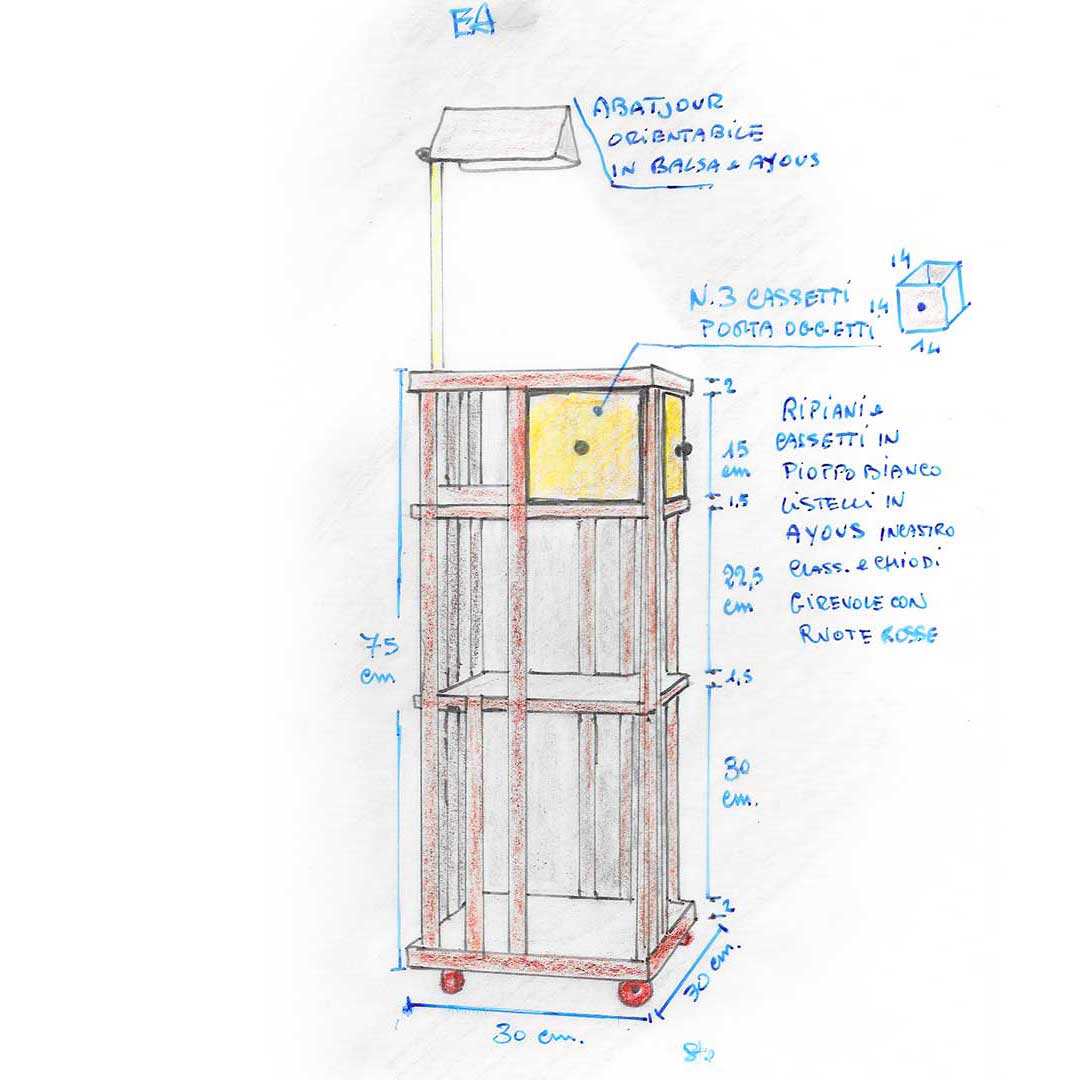 EA
ABATJOUR
ORIENTABILE
IN BALSA e AYOUS
14
14
14
N.3 CASSETTI
PORTA OGGETTI
2
15
cm
1,5
22,5
cm
1,5
30
cm.
2
RIPIANI e
CASSETTI IN
PIOPPO BIANCO
LISTELLI IN
AYOUS INCASTRO
CLASS. e CHIODI
GIREVOLE CON
RUOTE ROSSE
75
cm
30 cm.
30 cm.